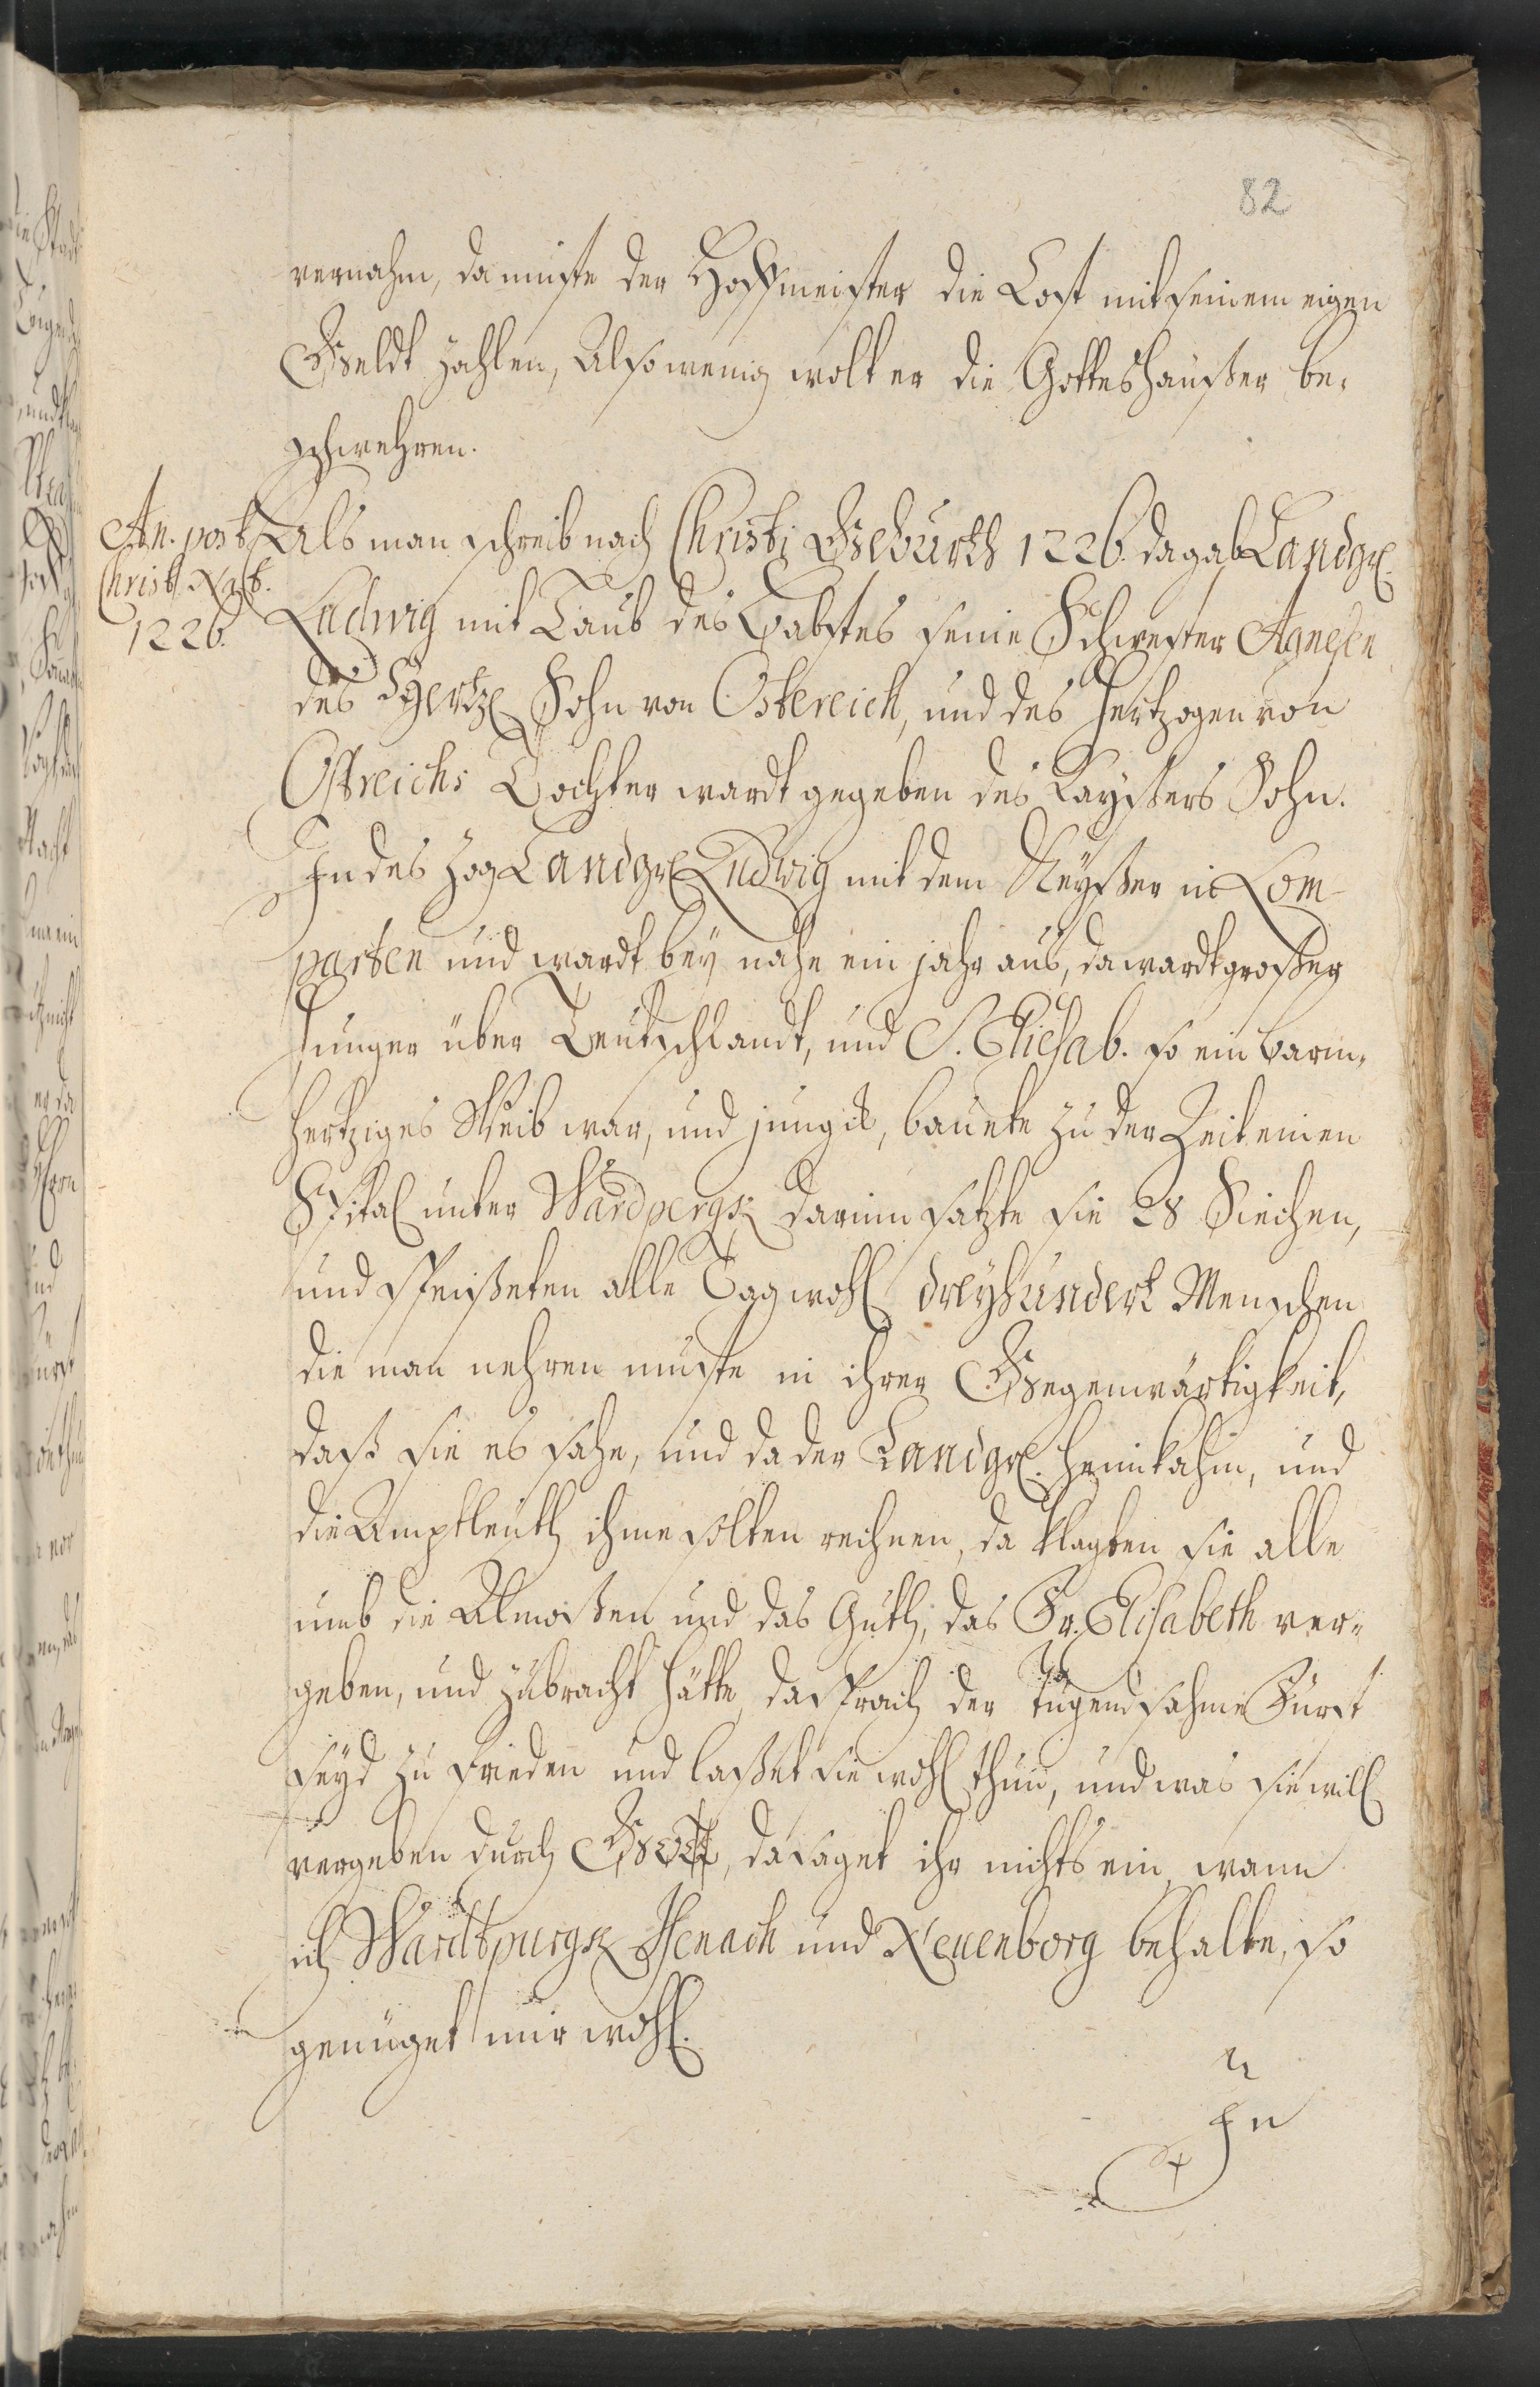 82
vernahm, da muste der Hoffmeister die Cost mit seinem eigen
Geldt zahlen, Also wenig wolt er die Gotteshäußer be-
schwehren.
An. post
Christ. Nat.
1226.
Als man schreib nach Christi Geburth 1226. da gab Landgr.
Ludwig mit Laub des Babstes seine Schwester Agnesen
des Hertz. Sohn von Ostereich, und des Hertzogen von
Ostreichs Tochter wardt gegeben des Kayßers Sohn.
In des zog Landgr. Ludwig mit dem Keyßer in Lom-
parten und wardt bey nahe ein jahr aus, da wardt großer
Hunger über Teutschlandt, und S. Eliesab. so ein barm-
hertziges Weib war, und jungst, bauete zu der Zeit einen
Spital unter Wardpergk darinn satzte sie 28 Siechen,
und speißeten alle Tag wohl dreyhundert Menschen
die man nehren muste in ihrer Gegenwärtigkeit,
daß sie es sahe, und da der Landgr. heimkahm, und
die Amptleuth ihme solten rechnen, da klagten sie alle
umb die Almoßen und das Guth, das Fr. Elisabeth ver-
geben, und zubracht hätte, da sprach der tugendsahme Fürst
seyd zu frieden und laßet sie wohl thun, und was sie will
vergeben durch Gott, da saget ihr nichts ein, wann
ich Wardtpurgk Isenach und Neuenborg behalte, so
genüget mir wohl.
In